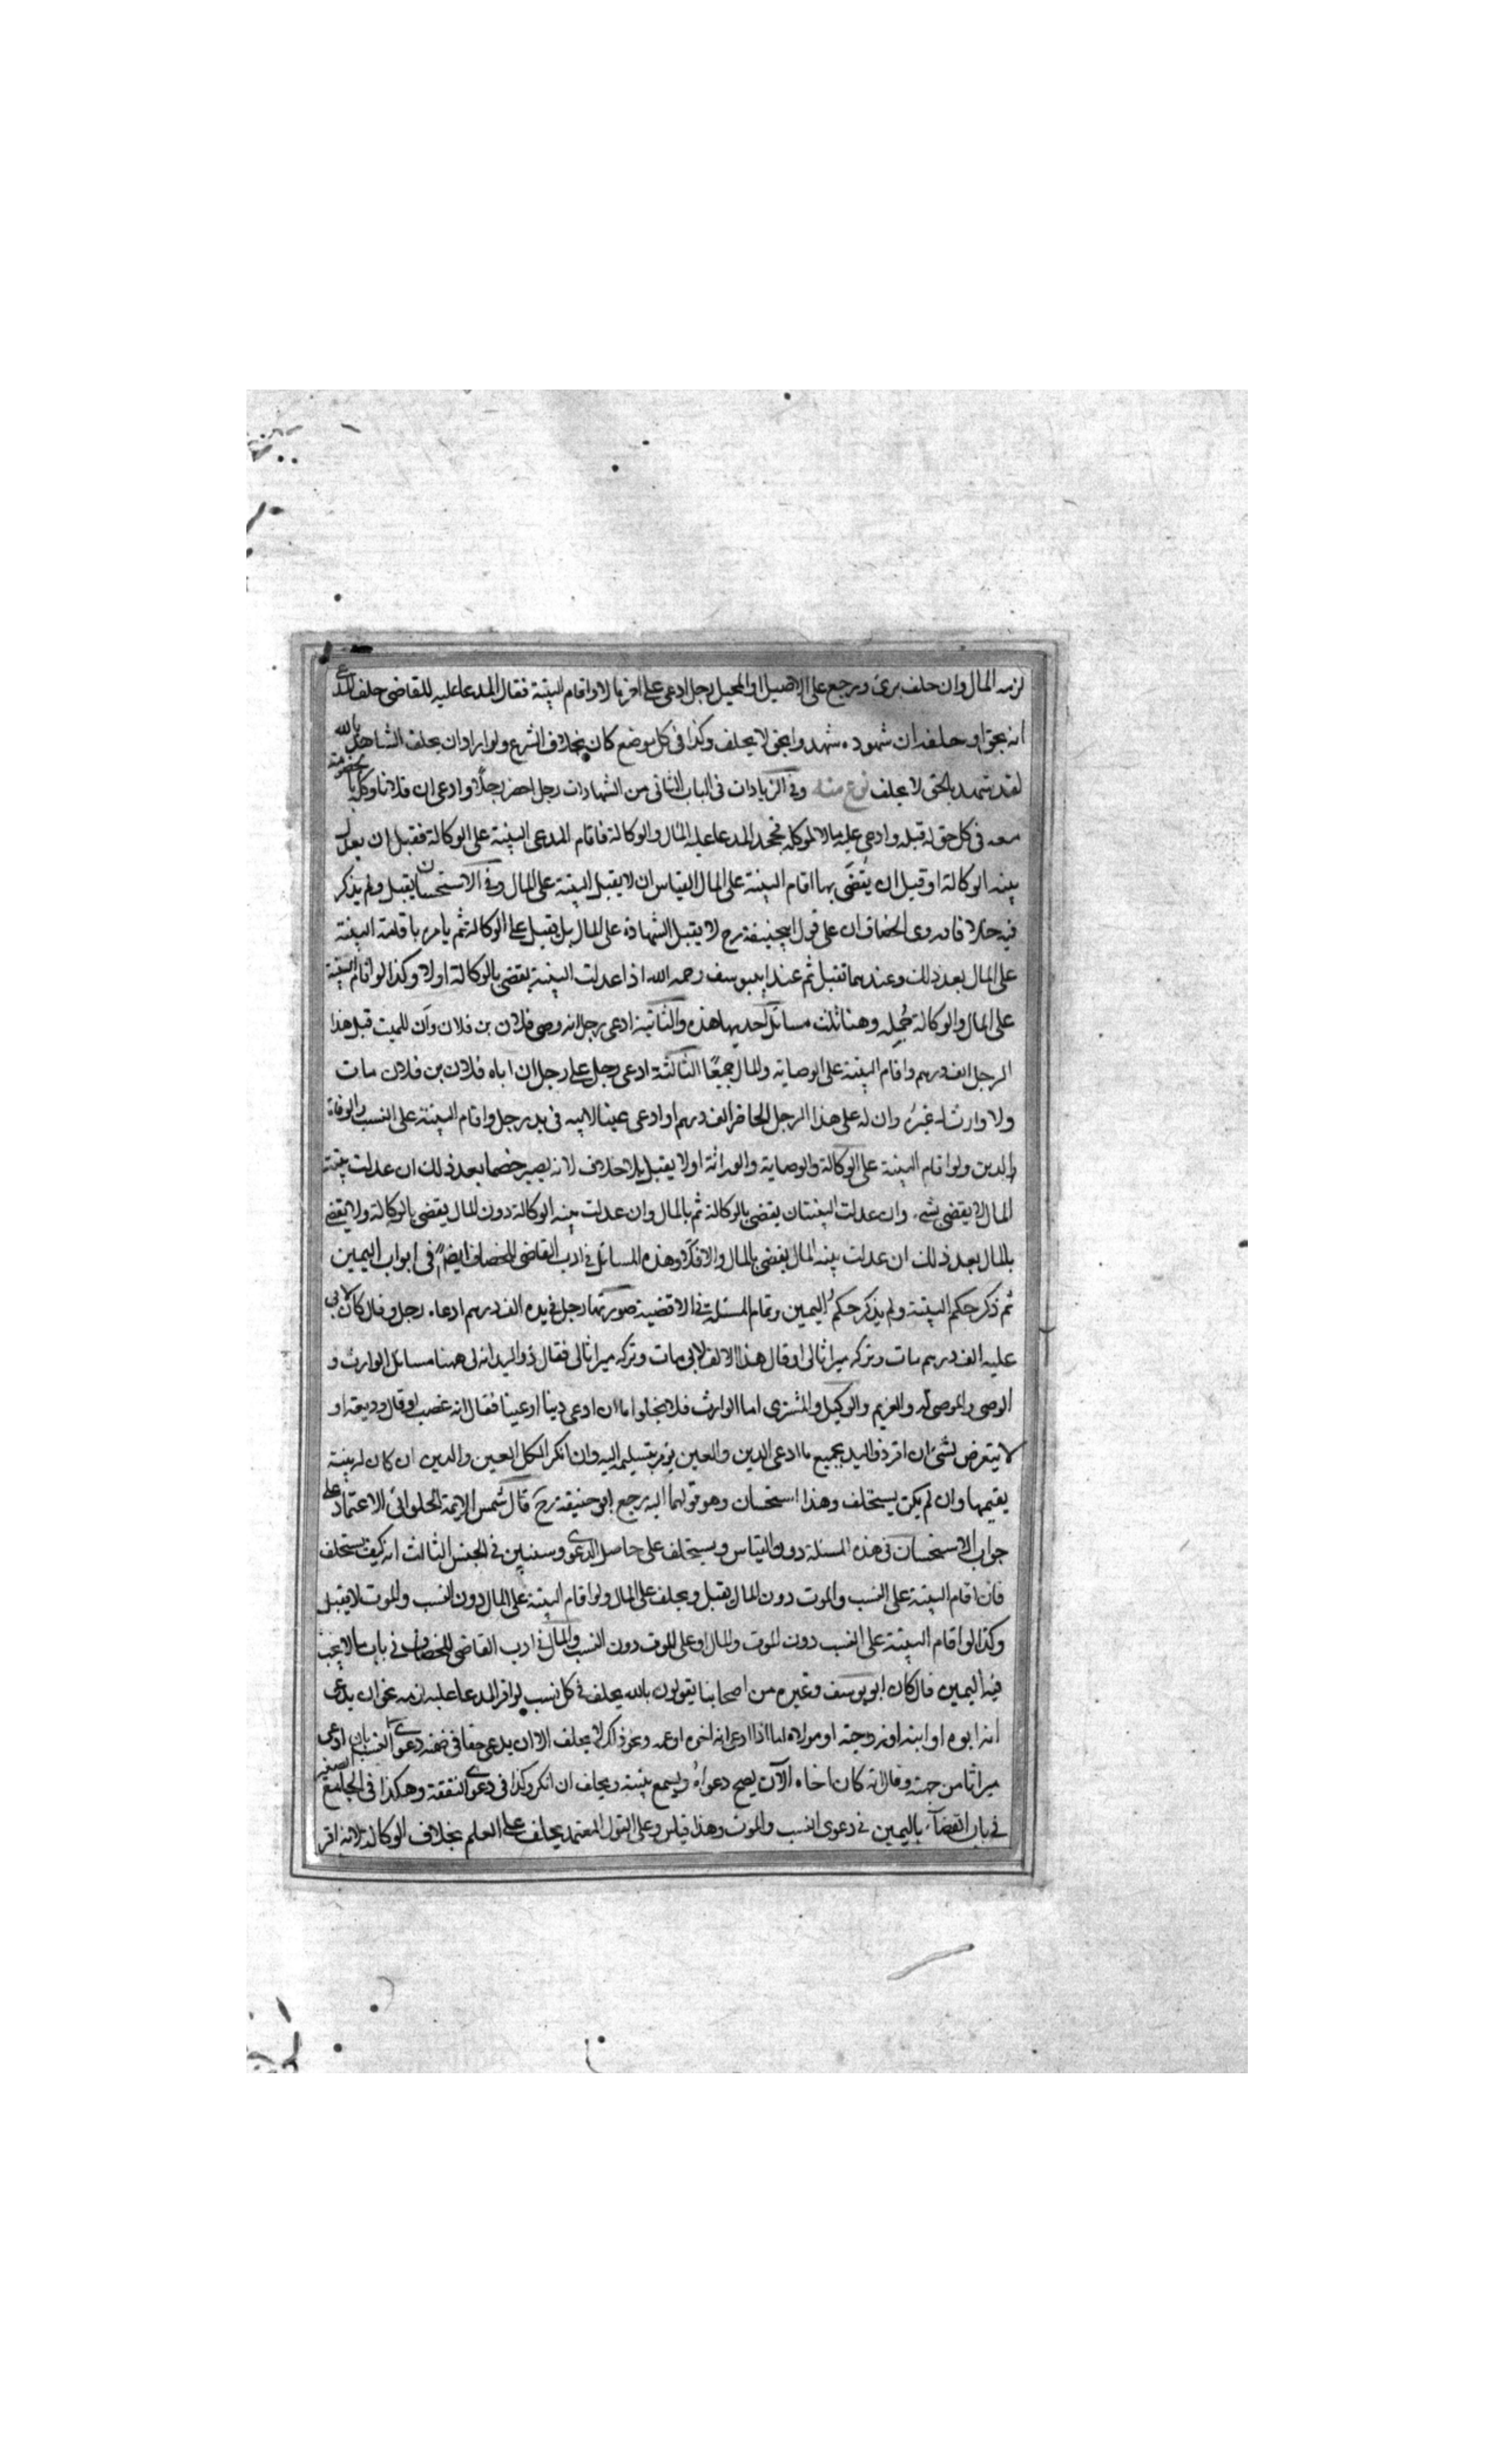 لزمه المال وان حلف برئ ويرجع على الاصيل او المحيل رجل ادعى على اخر مالا واقام البينة فقال المدعا عليه للقاضى حلف المدعى
انه بحق او حلفه ان شهوده شهدوا بحق لا يحلف وكذا فى كل موضع كان بخلاف الشرع ولو اراد ان يحلف الشاهد بالله
لقد شهد بالحق لا يحلف نوع منه وفى الزيادات فى الباب الثانى من الشهادات رجل احضر رجلا وادعى ان فلانا وكل بالخصومة
معه فى كل حق له قبله وادعى عليه مالا لموكله فجحد المدعا عليه المال والوكالة فاقام المدعى البينة على الوكالة فقبل ان يعدل
بينه الوكالة او قبل ان يقضى بها اقام البينة على المال القياس ان لا يقبل البينة على المال وفى الاستحسان يقبل ولم يذكر
فيه خلافا وروى الخصاف ان على قول ابيحنيفة رح لا يقبل الشهادة على المال بل يقبل على الوكالة ثم يامره باقامة البينة
على المال بعد ذلك وعندهما تقبل ثم عند ابيوسف رحمه الله اذا عدلت البينة يقضى بالوكالة اولا وكذا لو اقام البينة
على المال والوكالة جُمله وهنا ثلث مسائل احديها هذه والثانية ادعى رجل انه وصى فلان بن فلان وان للميت قبل هذا
الرجل الف درهم واقام البينة على الوصاية والمال جميعًا الثالثة ادعى رجل على رجل ان اباه فلان بن فلان مات
ولا وارث له غيره وان له على هذا الرجل الحاضر الف درهم او ادعى عينا لابيه فى يد رجل واقام البينة على النسب والوفاة
والدين ولو اقام البينة على الوكالة والوصاية والوراثة اولا يقبل بلا خلاف لانه يصير خصما بعد ذلك ان عدلت بينة
المال لا يقضى بشى وان عدلت البينتان يقضى بالوكالة ثم بالمال وان عدلت بينه الوكالة دون المال يقضى بالوكالة ولا يقضى
بالمال بعد ذلك ان عدلت بينه المال يقضى بالمال والا فلا وهذه المسائل فى ادب القاضى للخصاف ايضًا فى ابواب اليمين
ثم ذكر حكم البينة ولم يذكر حكم اليمين وتمام المسئلة فى الاقضية صورتها رجل فى يده الف درهم ادعاه رجل وقال كان لابى
عليه الف درهم مات وتركه ميراثا لى او قال هذا الالف لابى مات وتركه ميراثا لى فقال ذو اليد انه لى ههنا مسائل الوارث و
الوصى والموصى له والغريم والوكيل والمشترى اما الوارث فلا يخلوا اما ان ادعى دينا او عينا فقال انه غصب او قال وديعة او
لا يتعرض لشئ ان اقر ذو اليد بجميع ما ادعى الدين والعين يؤمر بتسليمه اليه وان انكر الكل العين والدين ان كان له بينة
يقيمها وان لم يكن يستحلف وهذا استحسان وهو قولهما اليه رجع ابو حنيفة رح قال شمس الايمة الحلوانى الاعتماد على
جواب الاستحسان فى هذه المسئلة دون القياس ويستحلف على حاصل الدعوى وسنبين فى الجنس الثالث انه كيف يستحلف
فان اقام البينة على النسب والموت دون المال يقبل ويحلف على المال ولو اقام البينة على المال دون النسب والموت لا يقبل
وكذا لو اقام البينة على النسب دون الموت والمال او على الموت دون النسب والمال فى ادب القاضى للخصاف فى باب ما لا يجب
فيه اليمين قال كان ابو يوسف وغيره من اصحابنا يقولون بالله يحلف فى كل نسب لو اقر المدعا عليه لزمه نحو ان يدعى
انه ابوه او ابنه او زوجته او مولاه اما اذا ادعى انه اخوه او عمه ونحو ذلك لا يحلف الا ان يدعى حقا فى ضمنه دعوى النسب بان ادعى
ميراثا من جهته وقال انه كان اخاه الآن يصح دعواهُ ويسمع بينته ويحلف ان انكر وكذا فى دعوى النفقة وهكذا فى الجامع الصغير
فى باب القضآء باليمين فى دعوى النسب والموت وهذا قياس وعلى القول المعتمد يحلف على العلم بخلاف الوكالة لانه اقر